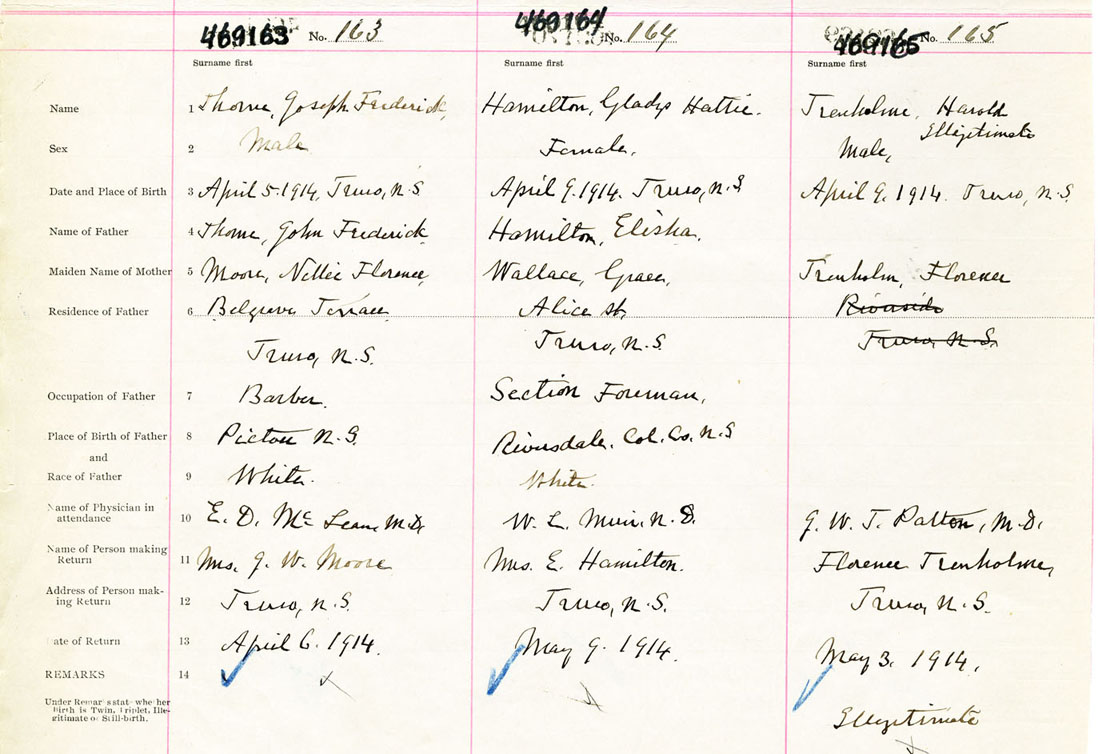 469163 No. 163 469164 No. 164 469165 No. 165
Surname first Surname first Surname first
Name 1 Thorne, Joseph Frederick, Hamilton, Gladys Hattie. Trenholme, Harold
Illegitimate
Sex 2 Male Female, Male,
Date and Place of Birth 3 April 5. 1914, Truro, N.S April 9. 1914. Truro, N.S April 9. 1914. Truro, N.S.
Name of Father 4 Thorne, John Frederick Hamilton, Elisha.
Maiden Name of Mother 5 Moore, Nellie Florence, Wallace, Grace, Trenholm, Florence
Residence of Father 6 Belgrave Terrace Alice St, Riverside
Truro, N.S. Truro, N.S. Truro, N.S.
Occupation of Father 7 Barber. Section Foreman,
Place of Birth of Father 8 Pictou N.S. Riversdale. Col. Co. N.S
and
Race of Father 9 White. White.
Name of Physician in
attendance 10 E. D. McLean, M.D, W. L. Muir, M.D. J. W. T. Patton, M.D.
Name of Person making
Return 11 Mrs. J. W. Moore Mrs. E. Hamilton. Florence Trenholme,
Address of Person mak-
ing Return 12 Truro, N.S. Truro, N.S. Truro, N.S.
ate of Return 13 April 6. 1914. May 9. 1914. May 3. 1914.
REMARKS 14
Under Remar s stat whe her
Birth is Twin, Triplet, Ille-
gitimate or Still-birth.
Illegitimate